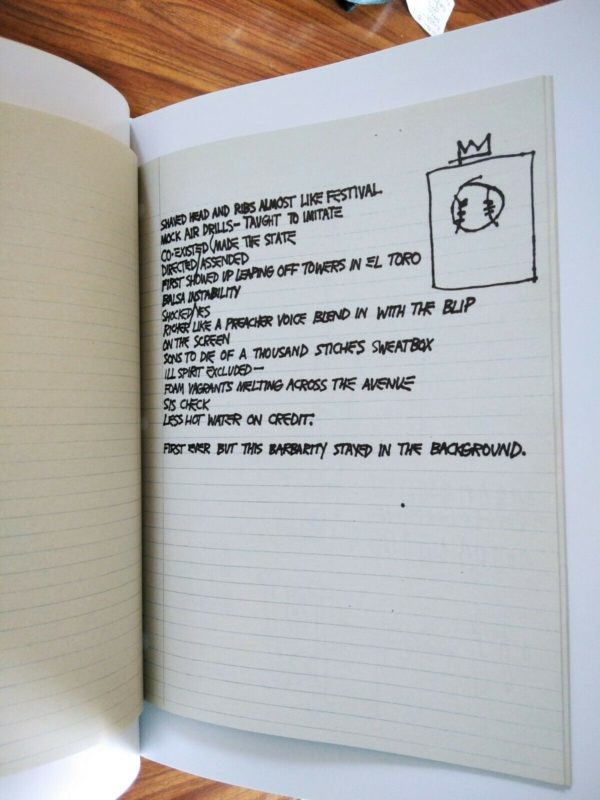 SHAVED HEAD AND RIBS ALMOST LIKE FESTIVAL
MOCK AIR DRILLS— TAUGHT TO IMITATE
CO-EXISTED/MADE THE STATE
DIRECTED/ASSENDED
FIRST SHOWED UP LEAPING OFF TOWERS IN EL TORO
BALSA INSTABILITY
SHOCKED/YES
RICHER LIKE A PREACHER VOICE BLEND IN WITH THE BLIP
ON THE SCREEN
SONS TO DIE OF A THOUSAND STICHES SWEATBOX
ILL SPIRIT EXCLUDED—
FOAM VAGRANTS MELTING ACROSS THE AVENUE
SIS CHECK
LESS HOT WATER ON CREDIT.
FIRST EVER BUT THIS BARBARITY STAYED IN THE BACKGROUND.